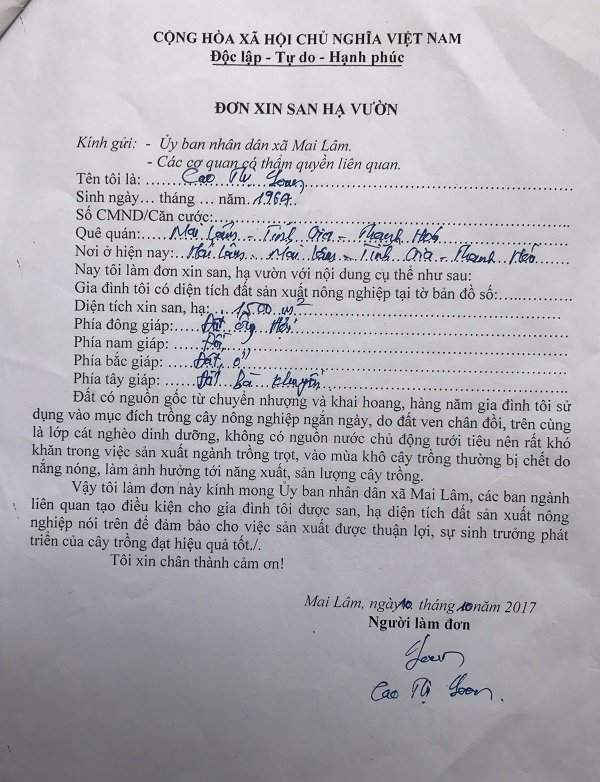 CỘNG HÒA XÃ HỘI CHỦ NGHĨA VIỆT NAM
Độc lập - Tự do - Hạnh phúc
ĐƠN XIN SAN HẠ VƯỜN
Kính gửi: - Ủy ban nhân dân xã Mai Lâm.
- Các cơ quan có thẩm quyền liên quan.
Tên tôi là: Cao Thị Loan
Sinh ngày... tháng ... năm. 1969
Số CMND/Căn cước:
Quê quán: Mai Lâm - Tĩnh Gia - Thanh Hoá
Nơi ở hiện nay: Hải Lâm - Mai Lâm - Tĩnh Gia - Thanh Hoá
Nay tôi làm đơn xin san, hạ vườn với nội dung cụ thể như sau:
Gia đình tôi có diện tích đất sản xuất nông nghiệp tại tờ bản đồ số:
Diện tích xin san, hạ: 1500 m2
Phía đông giáp: Đất ông
Phía nam giáp: Đồi
Phía bắc giáp: Đất ở
Phía tây giáp: Đất Bà
Đất có nguồn gốc từ chuyển nhượng và khai hoang, hàng năm gia đình tôi sử
dụng vào mục đích trồng cây nông nghiệp ngắn ngày, do đất ven chân đồi, trên cùng
là lớp cát nghèo dinh dưỡng, không có nguồn nước chủ động tưới tiêu nên rất khó
khăn trong việc sản xuất ngành trồng trọt, vào mùa khô cây trồng thường bị chết do
nắng nóng, làm ảnh hưởng tới năng xuất, sản lượng cây trồng.
Vậy tôi làm đơn này kính mong Ủy ban nhân dân xã Mai Lâm, các ban ngành
liên quan tạo điều kiện cho gia đình tôi được san, hạ diện tích đất sản xuất nông
nghiệp nói trên để đảm bảo cho việc sản xuất được thuận lợi, sự sinh trưởng phát
triển của cây trồng đạt hiệu quả tốt./.
Tôi xin chân thành cảm ơn!
Mai Lâm, ngày 10 tháng 10 năm 2017
Người làm đơn
Loan
Cao Thị Loan